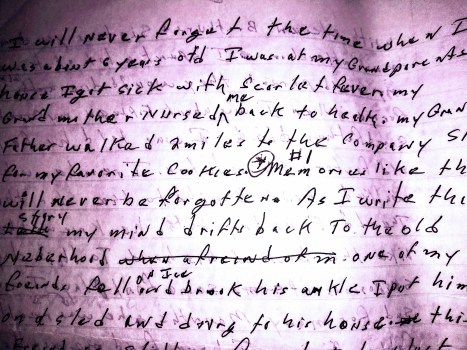 I will never forget the time when I
was about 6 years old I was at my Grandparents
house I got sick with Scarlet fever, my
Grand mother Nursed me back to health, my Gran
Father walked 2 miles to the Company S
for my favorite Cookies. #1 Memories like th
will never be forgotten. As I write thi
story my mind drifts back To the old
Naberhood when a freind of m one of my
freinds fell on Ice and brook his ankle I put him
on sled and drug to his house thi